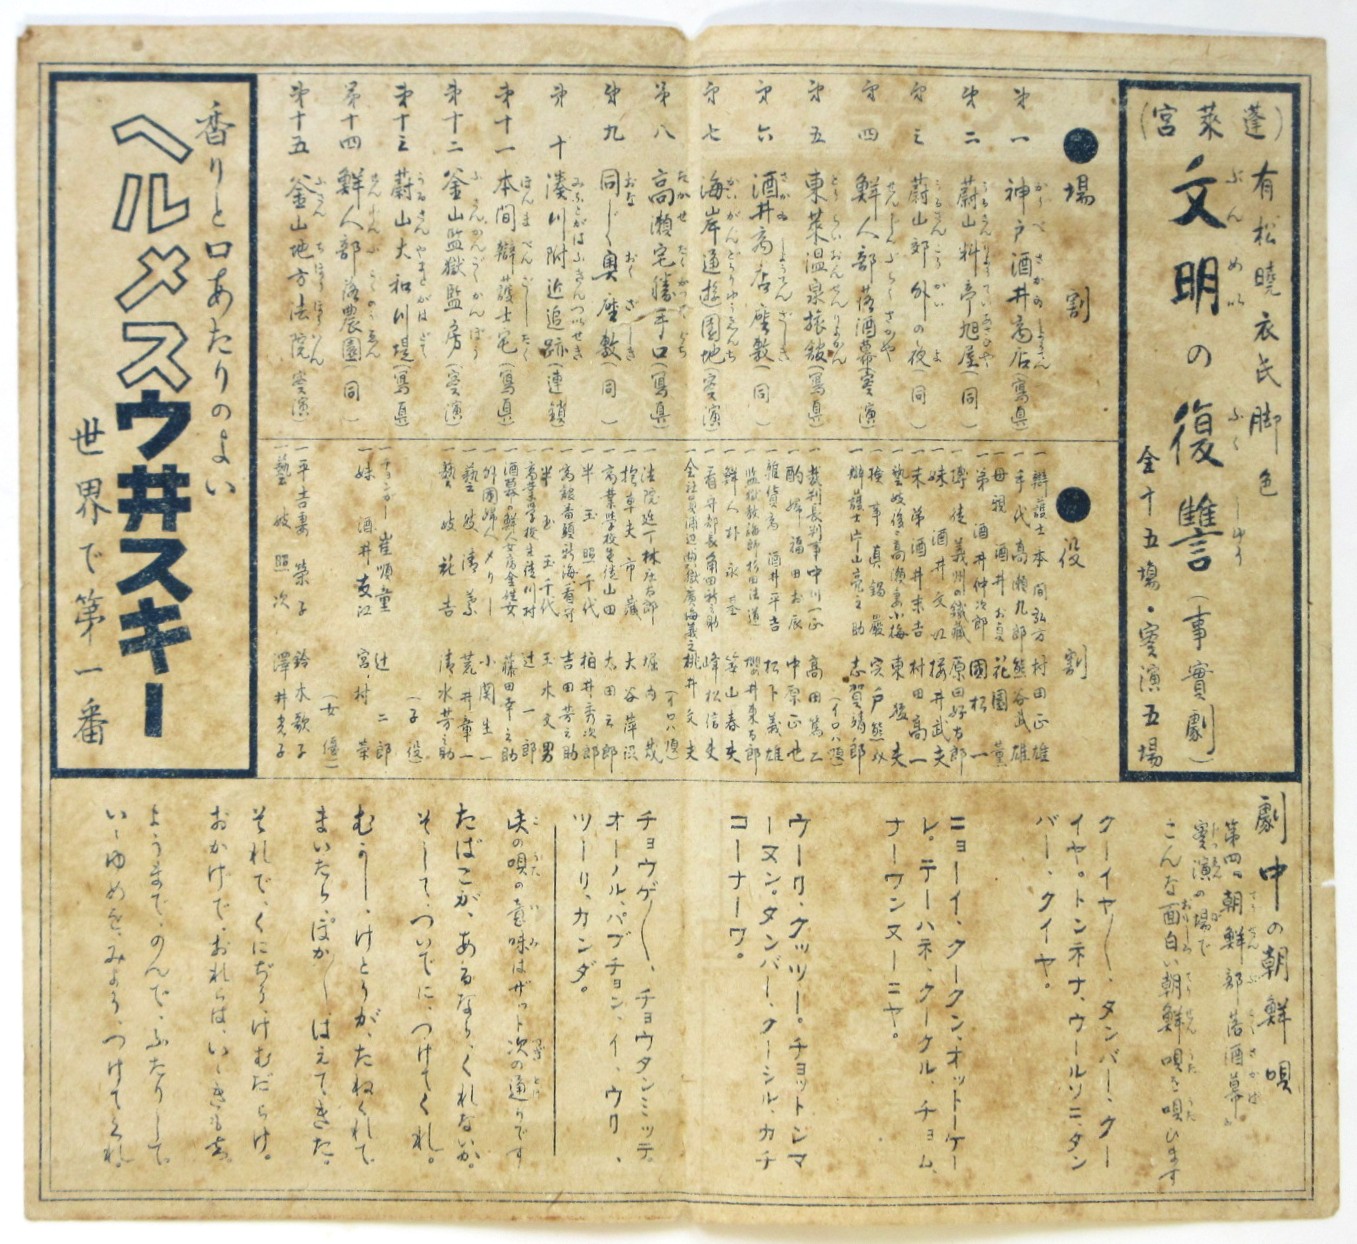 (蓬萊宮)
有松曉衣氏脚色
文明の復讐(事實劇)
ぶんめい ふくしゆう
全十五場・實演五場
●場割
第一 神戸酒井商店(寫眞)
第二 蔚山料亭旭屋(同)
第三 蔚山郊外の夜(同)
第四 鮮人部落酒幕(實演)
第五 東萊温泉旅舘(寫眞)
第六 酒井商店座敷(同)
第七 海岸通遊園地(實演)
第八 高瀬宅勝手口(寫眞)
第九 同じく奥座敷(同)
第十 湊川附近追跡(連鎖)
第十一 本間辯護士宅(寫眞)
第十二 釜山監獄監房(實演)
第十三 蔚山大和川堤(寫眞)
第十四 鮮人部落農園(同)
第十五 釜山地方法院(實演)
●役割
一辯護士本間弘方 村田正雄
一手代高瀬九郎 熊谷武雄
一母親酒井お貞 花園薫
一第酒井仲次郎 國松一
一博徒義州の鐵藏 原田好太郎
一妹酒井文江 櫻井武夫
一末弟酒井末吉 村田高一
一藝妓後に高瀬妻小梅 東後夫
一檢事眞鍋嚴 宍戸熊
一辯護士片山亮之助 志賀靖郎
(イロハ順)
一裁判長判事中川一正 高田篤二
一酌婦福田お辰 中原正也
一雜貨商酒井平吉 松下義雄
一監獄教誨師杉田法道 櫻井東太郎
一鮮人朴永基 笠山春夫
一看守部長角田新之助 峰松信夫
桃井文夫
(イロハ順)
一法院廷丁林庄太郎 堀内茂
一抱車夫市藏 大谷萍汲
一高業學校生徒山田 太田三郎
一半玉照千代 柏井秀次郎
吉田芳之助
一半玉玉千代 玉木文男
一高業學校生徒川村 辻一郎
一酒幕の鮮人女房金姓女 藤田幸之助
一外國婦人メリー 小関生一
一藝妓清葉 荒井章一
一藝妓花吉 清水芳之助
(子役)
崔順童 辻二郎
一妹酒井友江 宮村榮
(女優)
一平吉妻榮子 鈴木歌子
一藝妓照次 澤井光子
香りと口あたりのよい
ヘルメスウ井スキー
世界で第一番
劇中の朝鮮唄
第四、朝鮮部落酒幕の
實演の場で
こんな面白い朝鮮唄を唄ひます
クーイヤ〱、タンバー、クー
イヤ。トンネナ、ウールソニ、タン
バー、クイヤ。
ニョーイ、クークン、オットーケー
レ。テーハネ、クークル、チョム、
ナーウンヌーニヤ。
ウーク、クッツー。チョットンマ
ーヌン。タンバー、クーシル、カチ
コーナーワ。
チョウゲ〱、チョウタンミッテ、
オールパプチョン、イ、ウリ、
ツーリ、カンダ。
此の唄の意味はザット次の通りです
たばこが、あるなら、くれないか。
そして、ついでに、つけてくれ。
むかし、けとうが、たねくれて
まいたら、ぽか〱はえてきた。
それで、くにぢう、けむだらけ。
おかげで、おれらは、いきもち。
ようまで、のんで、ふたりして、
いーゆめを、みよう、つけてくれ。